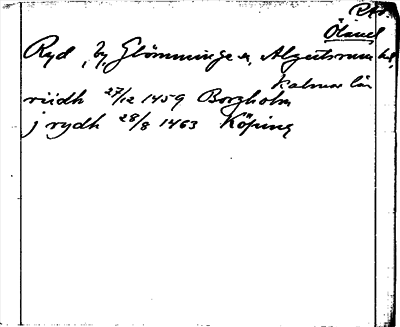 Ryd
Öland
Ryd, by, Glömminge sn, Algutsrum hd,
Kalmar län
riidh 27/12 1459 Borgholm
j rydh 28/8 1463 Köping